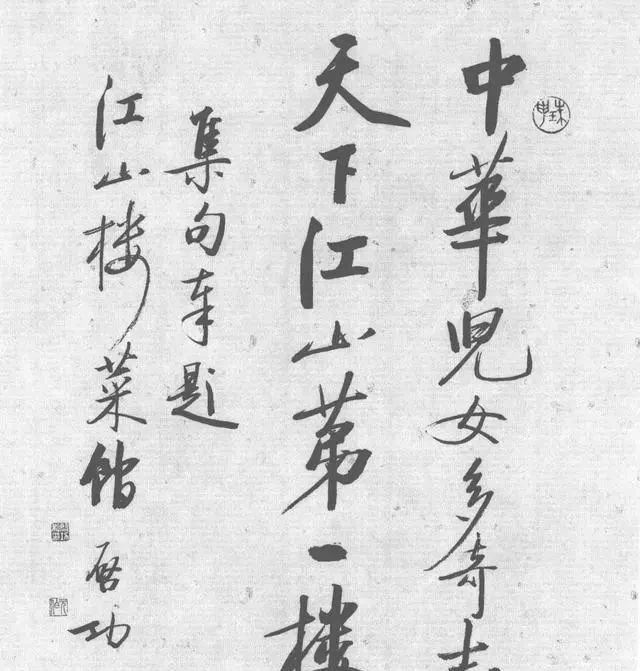 中華兒女多奇志
天下江山第一楼
集句奉題
江山楼菜館
啟功